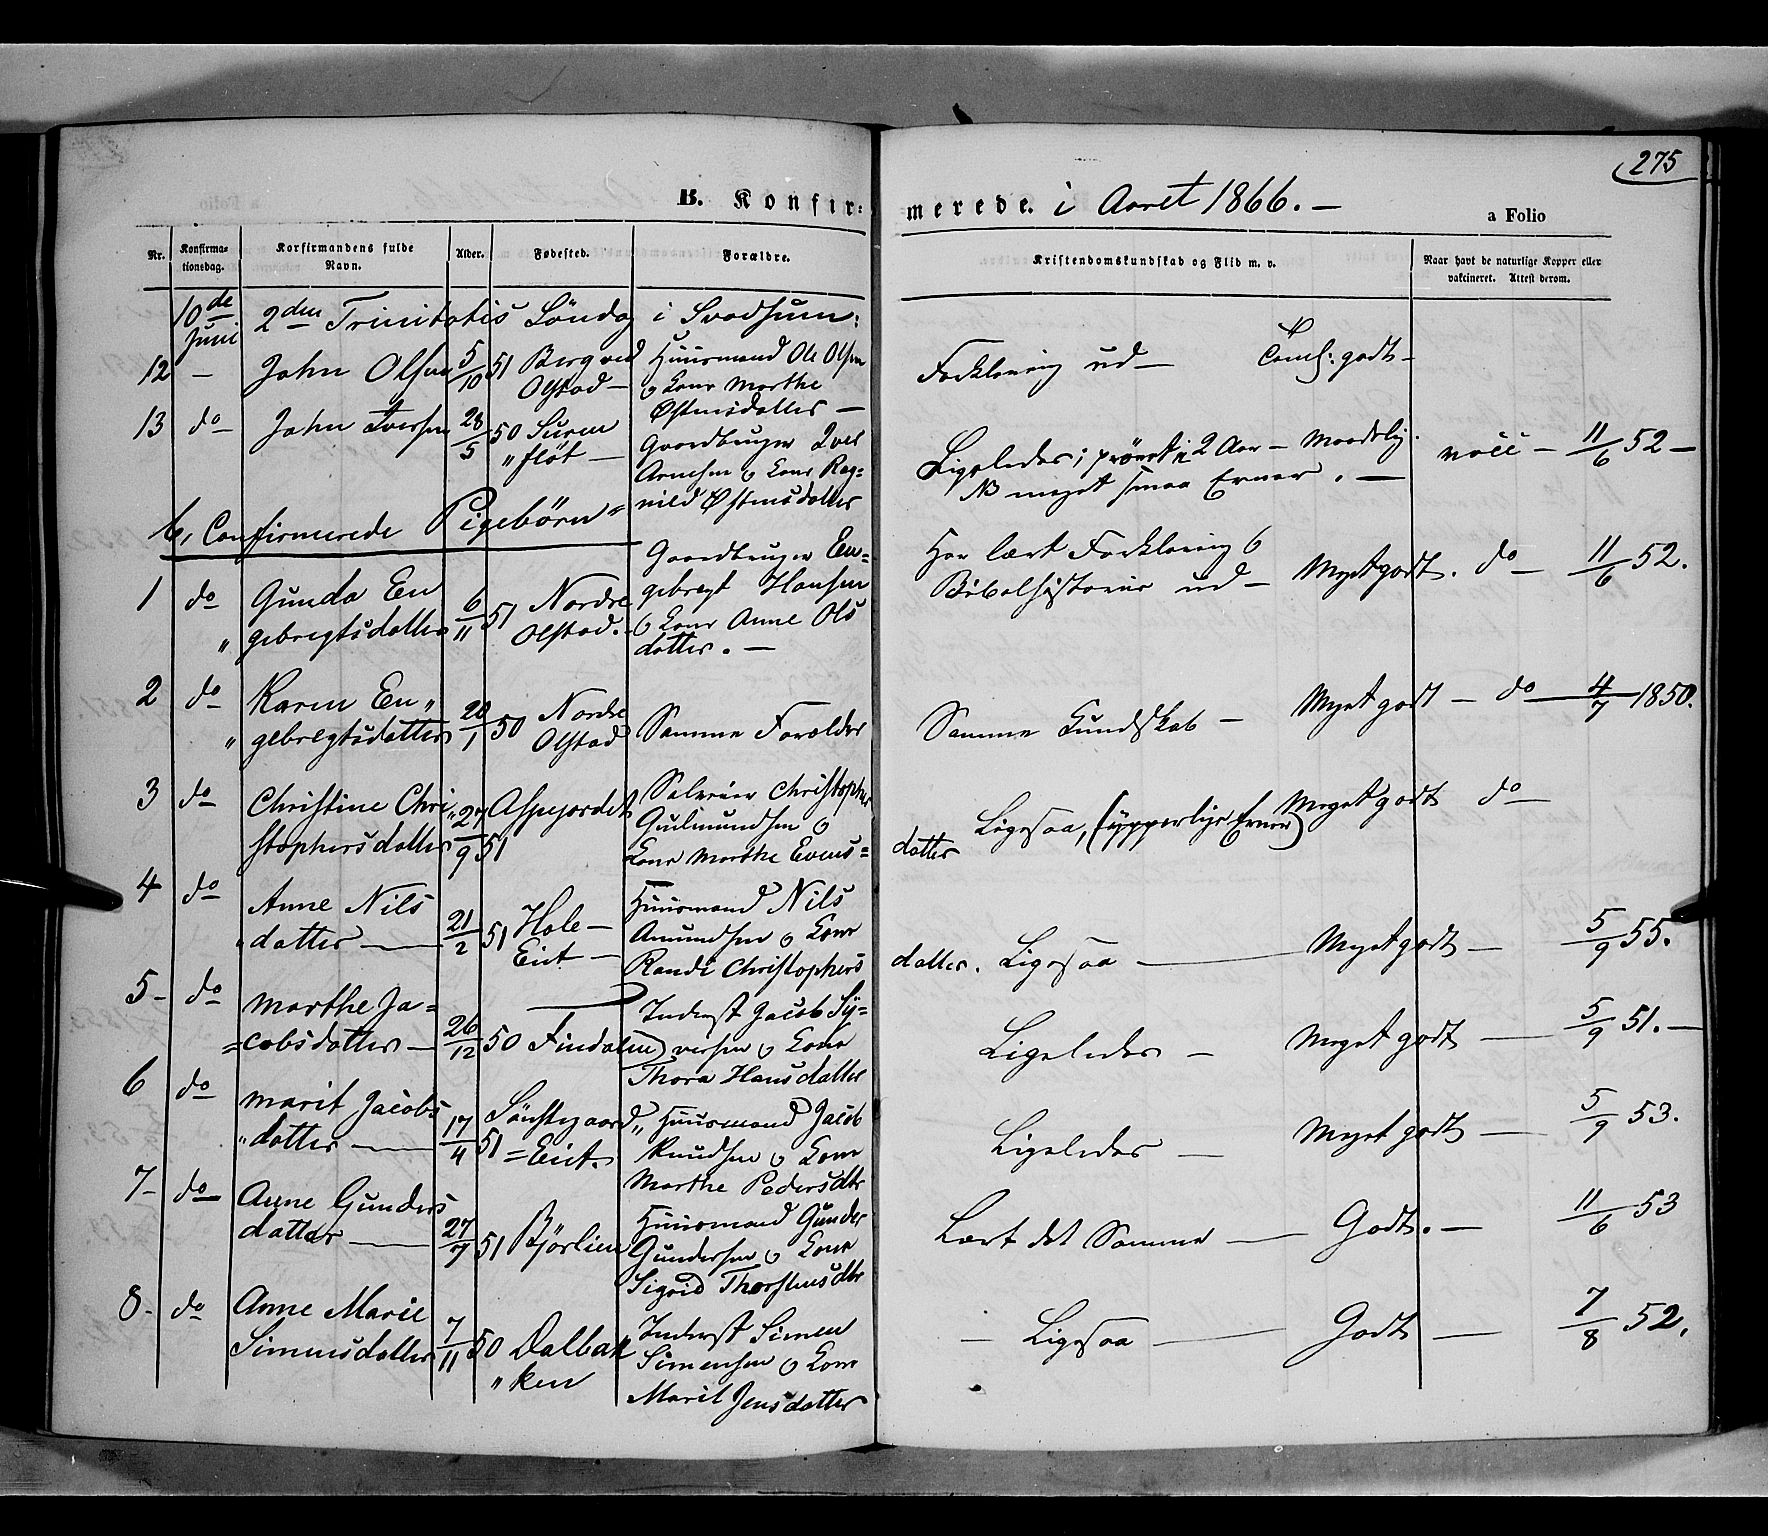 275
B. Konfir= merede. i Aaret 1866. —
a Folio
Nr. Konfirma=tionsdag. Konfirmandens fulde Navn. Alder. Fødested. Forældre. Kristendomskundskab og Flid m. v. Naar havt de naturlige Kopper eller vaktineret. Attest derom.
10de Juni 2den Trinitatis Söndag i Svadsum:
12 — John Olsen 5/10 51 Berg ved Olstad — Huusmand Ole Olsen o Kone Marthe Østensdatter — Forklaring ud — godt —
13 do John Iversen 28/5 50 Suren „ flöt — Gaardbruger Iver Arnesen o Kone Rag= nild Østensdatter Ligeledes; prövet i 2 Aar — Maadelig. NB meget smaa Evner. — vacc — 11/6 52 —
b, Confirmerede Pigebörn =
1 do Gunda En „ gebregtsdatter 6/11 51 Nordre Olstad. Gaardbruger En= gebregt Hansen o Kone Anne Ols datter. — Har lært Forklaring o Bibelhistorie ud — Meget godt. do — 11/6 52.
2 do Karen En „ „ gebregtsdatter 20/1 50 Nordre Olstad Samme Forældre Samme Kundskab — Meget godt — do — 4/7 1850.
3 do Christine Chri „ stophersdatter 27/9 51 Aspejordet Christopher Gulmundsen o Kone Marthe Evens= datter Ligesaa, (ypperlige Evner) Meget godt do —
4 do Anne Nils „ datter — 21/2 51 Hole — Eiet — Huusmand Nils Amundsen o Kone Randi Christophers datter. Ligesaa — Meget godt — 5/9 55.
5 — do Marthe Ja= = cobsdatter — 26/12 50 Findalen Inderst Jacob Sy= versen o Kone Thora Hansdatter Ligeledes — Meget godt — 5/9 51. —
6 do Marit Jacobs „ datter — 17/4 51 Sönstegaard „ = Eiet. Huusmand Jacob Knudsen o Kone Marthe Pedersdtr Ligeledes — Meget godt — 5/9 53.
7 — do Anne Gunders datter — 27/7 51 Bjørlien Huusmand Gunder Gundersen o Kone Sigrid Thorstensdtr Lært det Samme — Godt. — 11/6 53
8 — do Anne Marie Simensdatter 7/11 50 Dalbak „ ken Inderst Simen Simensen o Kone Marit Jensdatter — Ligesaa — Godt — 7/8 52.